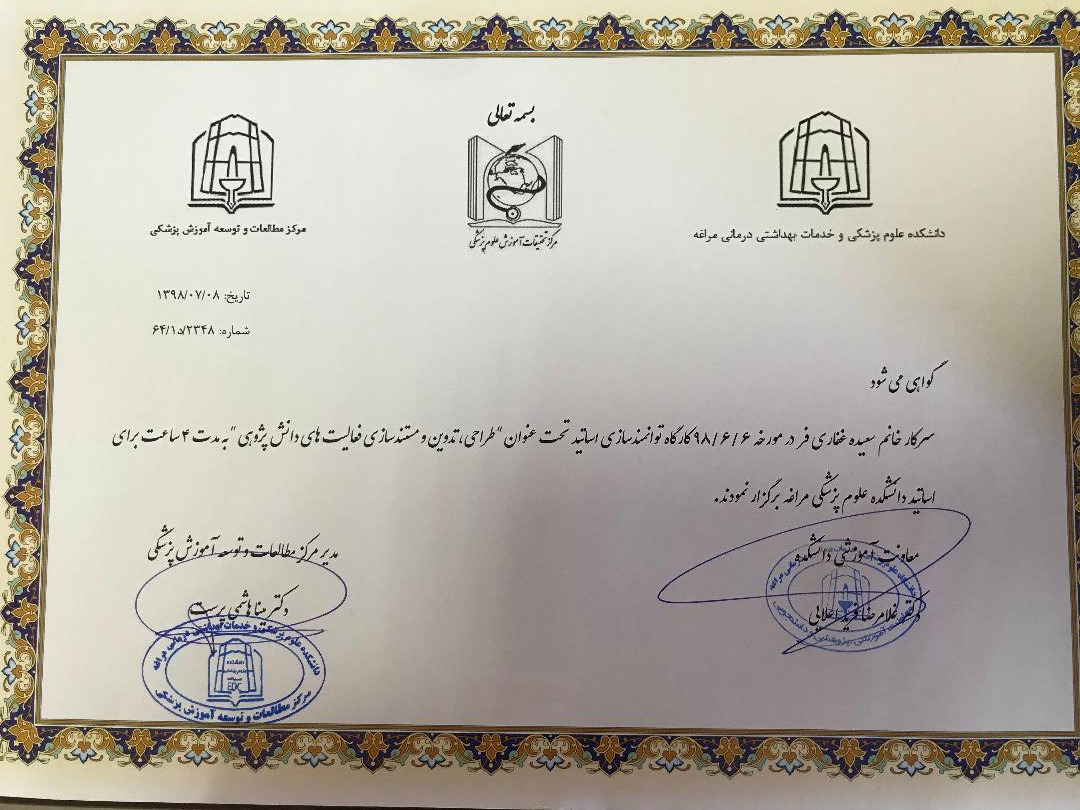 بسمه تعالی
دانشکده علوم پزشکی و خدمات بهداشتی درمانی مراغه
مرکز تحقیقات آموزش علوم پزشکی
مرکز مطالعات و توسعه آموزش پزشکی
تاریخ: ۱۳۹۸/۰۷/۰۸
شماره: ۶۴/۱۵/۲۳۴۸
گواهی می شود
سرکار خانم سعیده غفاری فر در مورخه ۹۸/۶/۶ کارگاه توانمندسازی اساتید تحت عنوان "طراحی، تدوین و مستندسازی فعالیت های دانش پژوهی" به مدت ۴ ساعت برای
اساتید دانشکده علوم پزشکی مراغه برگزار نمودند.
معاونت آموزشی دانشکده
دکتر غلامرضا فرید اعلایی
مدیر مرکز مطالعات و توسعه آموزش پزشکی
دکتر مینا هاشمی پرست
دانشکده علوم پزشکی و خدمات بهداشتی درمانی مراغه
EDC
مرکز مطالعات و توسعه آموزش پزشکی